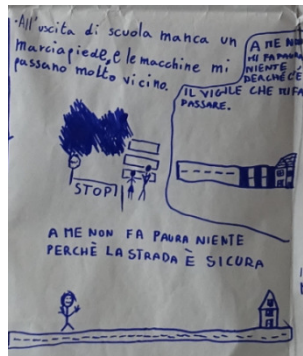 All'uscita di scuola manca un
marciapiede, e le macchine mi
passano molto vicino.
A ME NON
MI FA PAURA
NIENTE
PERCHÉ C'È
IL VIGILE CHE MI FA
PASSARE.
STOP!
A ME NON FA PAURA NIENTE
PERCHÈ LA STRADA È SICURA